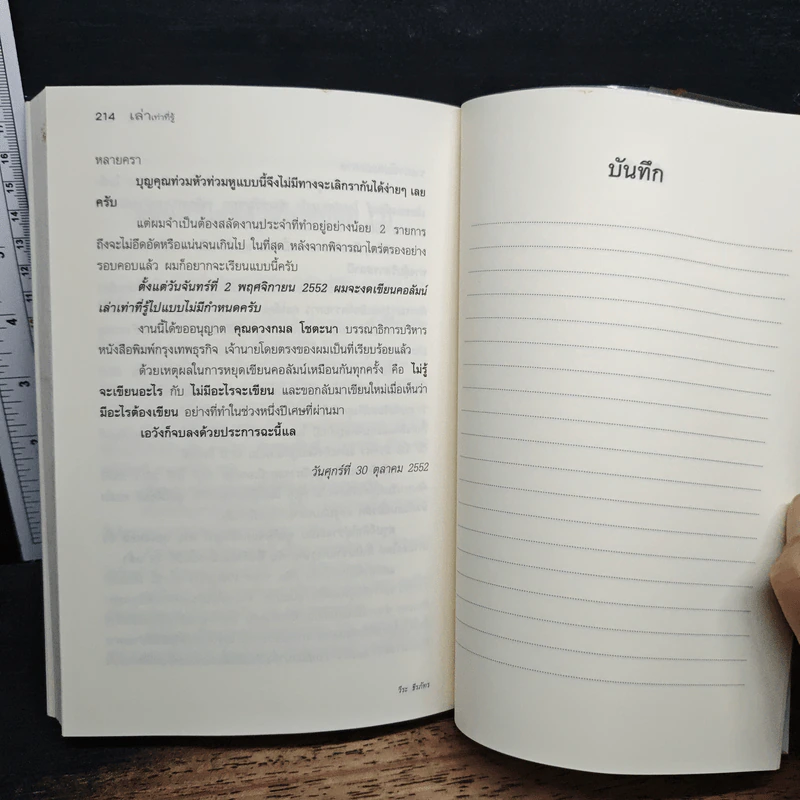 214 เล่าเท่าที่รู้
หลายครา
บุญคุณท่วมหัวท่วมหูแบบนี้จึงไม่มีทางจะเลิกรากันได้ง่ายๆ เลย
ครับ
แต่ผมจำเป็นต้องสลัดงานประจำที่ทำอยู่อย่างน้อย 2 รายการ
ถึงจะไม่อึดอัดหรือแน่นจนเกินไป ในที่สุด หลังจากพิจารณาไตร่ตรองอย่าง
รอบคอบแล้ว ผมก็อยากจะเรียนแบบนี้ครับ
ตั้งแต่วันจันทร์ที่ 2 พฤศจิกายน 2552 ผมจะงดเขียนคอลัมน์
เล่าเท่าที่รู้ไปแบบไม่มีกำหนดครับ
งานนี้ได้ขออนุญาต คุณดวงกมล โชตะนา บรรณาธิการบริหาร
หนังสือพิมพ์กรุงเทพธุรกิจ เจ้านายโดยตรงของผมเป็นที่เรียบร้อยแล้ว
ด้วยเหตุผลในการหยุดเขียนคอลัมน์เหมือนกันทุกครั้ง คือ ไม่รู้
จะเขียนอะไร กับ ไม่มีอะไรจะเขียน และขอกลับมาเขียนใหม่เมื่อเห็นว่า
มีอะไรต้องเขียน อย่างที่ทำในช่วงหนึ่งปีเศษที่ผ่านมา
เอวังก็จบลงด้วยประการฉะนี้แล
วันศุกร์ที่ 30 ตุลาคม 2552
วีระ ธีรภัทร
บันทึก
17
16
15
14
13
12
5
4
3
2